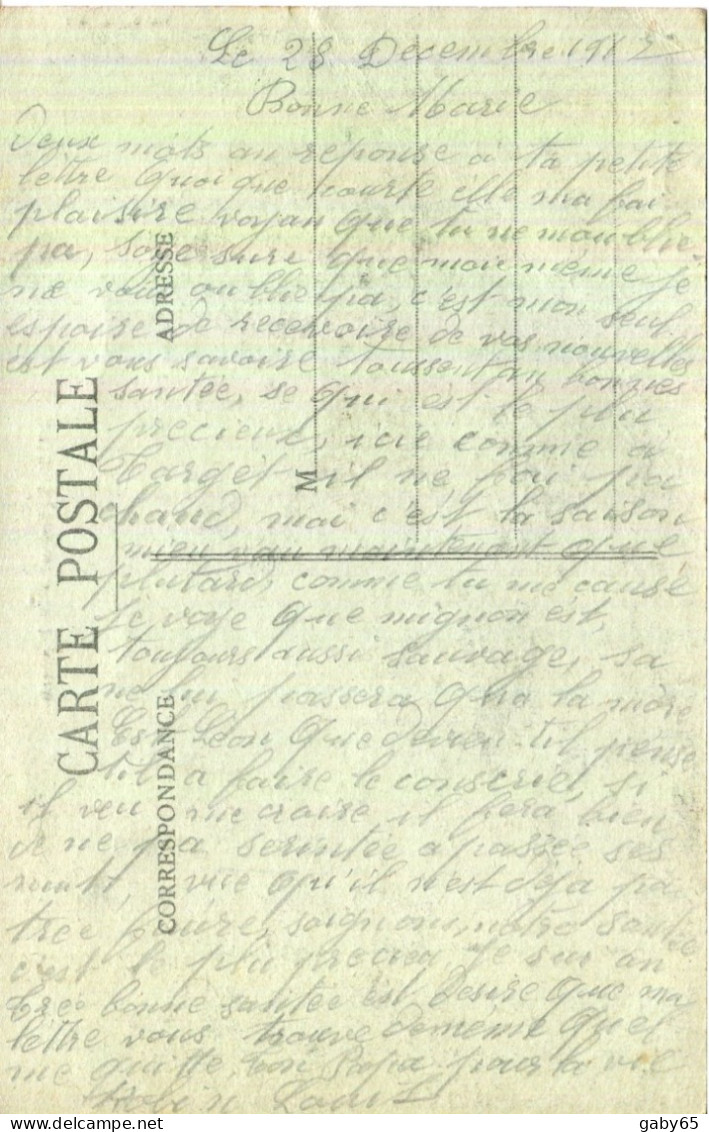 Le 28 Decembre 191
Bonne Marie
deux mots an reponse a ta petite
lettre quoique courte elle ma fai
plaisire voyan que tu ne moublie
pa, soie sure que moi même je
ne vous oublie pa, c'est mon seul
espoire de recevoire de vos nouvelles
est vous savoire toussent an bonnes
santée, se qui est le plu
precieux, icie comme a
Targét il ne fai pa
chaud, mai c'est la saison
mieu vau maintenent que
plutard, comme tu me cause
Je voye que mignon est,
toujours aussi sauvage, sa
ne lui passera qua la more
Est Léon que devien-til, pense
til a faire le conscrie, si
il veu me croire il fera bien
de ne pa a passée ses
vue qu'il n'est déja pa
tree, soignons, notre santée
c'est le plu precieu, Je sui an
tree bonne santée est desire que ma
lettre vous trouve deméme quel
me quitte, Ton Papa pour la vie
Louis
CARTE POSTALE
ADRESSE
M
CORRESPONDANCE
gaby65